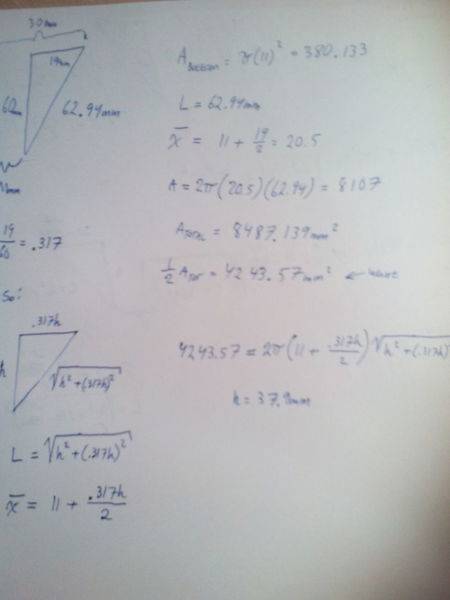 30mm
19mm
60mm
62.94mm
11mm
19/60 = .317
So:
.317h
h
√(h² + (.317h)²)
L = √(h² + (.317h)²)
x̄ = 11 + .317h/2
A_Bottom = π(11)² = 380.133
L = 62.94mm
x̄ = 11 + 19/2 = 20.5
A = 2π(20.5)(62.94) = 8107
A_TOTAL = 8487.139mm²
1/2 A_TOT = 4243.57mm² ←
4243.57 = 2π(11 + .317h/2)√(h² + (.317h)²
h = 37.9mm